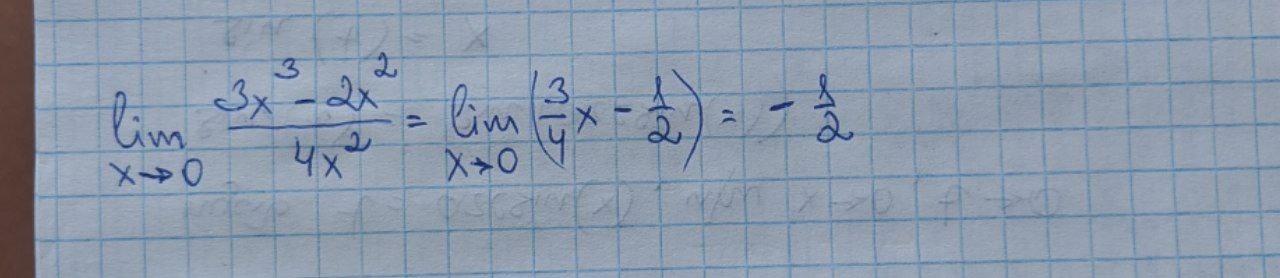 lim x→0 (3x³ - 2x²)/(4x²) = lim x→0 (3/4 x - 1/2) = - 1/2